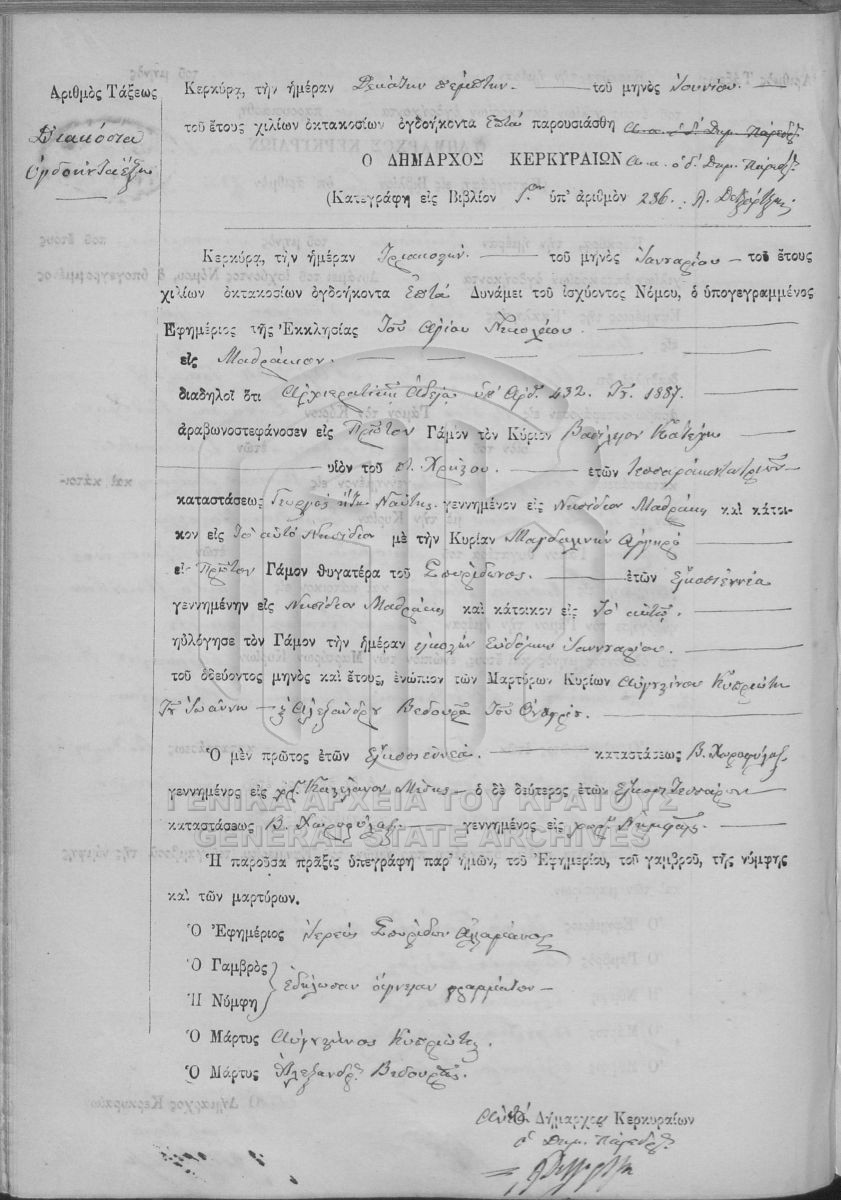 Ἀριθμὸς Τάξεως
Διακόσια
Ὀγδοήντα ἕξη
Κερκύρᾳ, τὴν ἡμέραν Δεκάτην πέμπτην. τοῦ μηνὸς Ἰουνίου.
τοῦ ἔτους χιλίων ὀκτακοσίων ὀγδοήκοντα ἑπτὰ παρουσιάσθη
Ὁ ΔΗΜΑΡΧΟΣ ΚΕΡΚΥΡΑΙΩΝ
(Κατεγράφη εἰς Βιβλίον ὑπ' ἀριθμὸν 286.
Κερκύρᾳ, τὴν ἡμέραν Τριακοστὴν. τοῦ μηνὸς Ἰανουαρίου τοῦ ἔτους
χιλίων ὀκτακοσίων ὀγδοήκοντα ἑπτὰ Δυνάμει τοῦ ἰσχύοντος Νόμου, ὁ ὑπογεγραμμένος
Ἐφημέριος τῆς Ἐκκλησίας Τοῦ Ἁγίου Νικολάου.
εἰς Μαθράκιον.
διαδηλοῖ ὅτι Ἀρχιερατικῇ Ἀδείᾳ ὑπ' Ἀρθ. 432. 1887.
ἀραβωνοστεφάνοσεν εἰς Πρῶτον Γάμον τὸν Κύριον Βασίλειον Κατέχη
υἱὸν τοῦ Χρήστου. ἐτῶν τεσσαρακοντατριῶν
καταστάσεως Γεωργὸς Ναύτης. γεννημένον εἰς Νησίδιον Μαθράκι καὶ κάτοι-
κον εἰς Τὸ αὐτὸ Νησίδιον μὲ τὴν Κυρίαν Μαγδαληνὴν Ἀργυρό
εἰς Πρῶτον Γάμον θυγατέρα τοῦ Σπυρίδωνος. ἐτῶν εἴκοσιεννέα
γεννημένην εἰς Νησίδιον Μαθράκι καὶ κάτοικον εἰς Τὸ αὐτό.
ηὐλόγησε τὸν Γάμον τὴν ἡμέραν εἰκοστὴν ἑυδόμην Ἰανουαρίου.
τοῦ ὁδεύοντος μηνὸς καὶ ἔτους, ἐνώπιον τῶν Μαρτύρων Κυρίων Αὐγουστίνου Κυπριώτη
Ἰωάννη Ἀλεξάνδρου Βεδουρᾶ τοῦ Ὀνουφρίου.
Ὁ μὲν πρῶτος ἐτῶν εἴκοσιεννέα. καταστάσεως Β. Χωροφύλαξ
γεννημένος εἰς ὁ δὲ δεύτερος ἐτῶν εἴκοσι τεσσάρων
καταστάσεως Β. Χωροφύλαξ. γεννημένος εἰς Νυμφάς.
Ἡ παροῦσα πρᾶξις ὑπεγράφη παρ' ἡμῶν, τοῦ Ἐφημερίου, τοῦ γαμβροῦ, τῆς νύμφης
καὶ τῶν μαρτύρων.
Ὁ Ἐφημέριος Ἱερεὺς Σπυρίδων
Ὁ Γαμβρὸς
Ἐδήλωσαν ἄγνοιαν γραμμάτων
Ἡ Νύμφη
Ὁ Μάρτυς Αὐγουστίνος Κυπριώτης.
Ὁ Μάρτυς Ἀλέξανδρος Βεδουρᾶς.
Δήμαρχος Κερκυραίων
ὁ Δημ. Πάρεδρος
ΓΕΝΙΚΑ ΑΡΧΕΙΑ ΤΟΥ ΚΡΑΤΟΥΣ
GENERAL STATE ARCHIVES